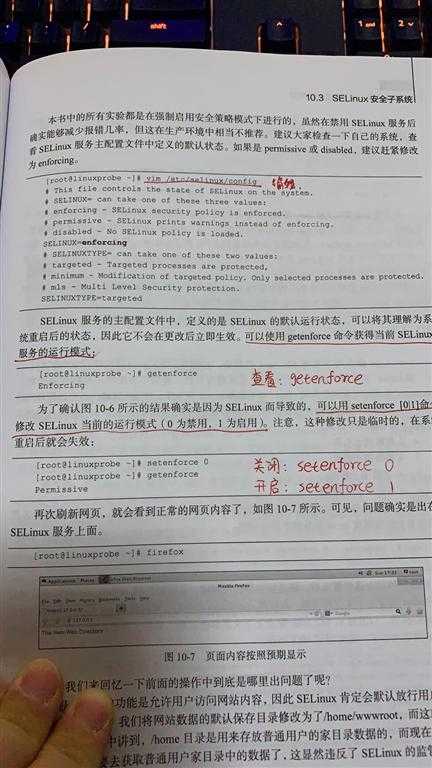 shift
1 end
2
10.3 SELinux 安全子系统
本书中的所有实验都是在强制启用安全策略模式下进行的，虽然在禁用 SELinux 服务后
确实能够减少报错几率，但这在生产环境中相当不推荐。建议大家检查一下自己的系统，查
看 SELinux 服务主配置文件中定义的默认状态。如果是 permissive 或 disabled，建议赶紧修改
为 enforcing。
[root@linuxprobe ~]# vim /etc/selinux/config
# This file controls the state of SELinux on the system.
# SELINUX= can take one of these three values:
# enforcing - SELinux security policy is enforced.
# permissive - SELinux prints warnings instead of enforcing.
# disabled - No SELinux policy is loaded.
SELINUX=enforcing
# SELINUXTYPE= can take one of these two values:
# targeted - Targeted processes are protected,
# minimum - Modification of targeted policy. Only selected processes are protected.
# mls - Multi Level Security protection.
SELINUXTYPE=targeted
SELinux 服务的主配置文件中，定义的是 SELinux 的默认运行状态，可以将其理解为系
统重启后的状态，因此它不会在更改后立即生效。可以使用 getenforce 命令获得当前 SELinux
服务的运行模式：
[root@linuxprobe ~]# getenforce
Enforcing
查看: getenforce
为了确认图 10-6 所示的结果确实是因为 SELinux 而导致的，可以用 setenforce [0|1]命
修改 SELinux 当前的运行模式（0 为禁用，1 为启用）。注意，这种修改只是临时的，在系
重启后就会失效：
[root@linuxprobe ~]# setenforce 0
[root@linuxprobe ~]# getenforce
Permissive
关闭: setenforce 0
开启: setenforce 1
再次刷新网页，就会看到正常的网页内容了，如图 10-7 所示。可见，问题确实是出在
SELinux 服务上面。
[root@linuxprobe ~]# firefox
Applications Places
Mozilla Firefox
File Edit View History Bookmarks Tools Help
127.0.0.1
Google
The New Web Directory
图 10-7 页面内容按照预期显示
我们来回忆一下前面的操作中到底是哪里出问题了呢？
功能是允许用户访问网站内容，因此 SELinux 肯定会默认放行用
我们将网站数据的默认保存目录修改为了/home/wwwroot，而这
中讲到，/home 目录是用来存放普通用户的家目录数据的，而现在
要去获取普通用户家目录中的数据了，这显然违反了 SELinux 的监管